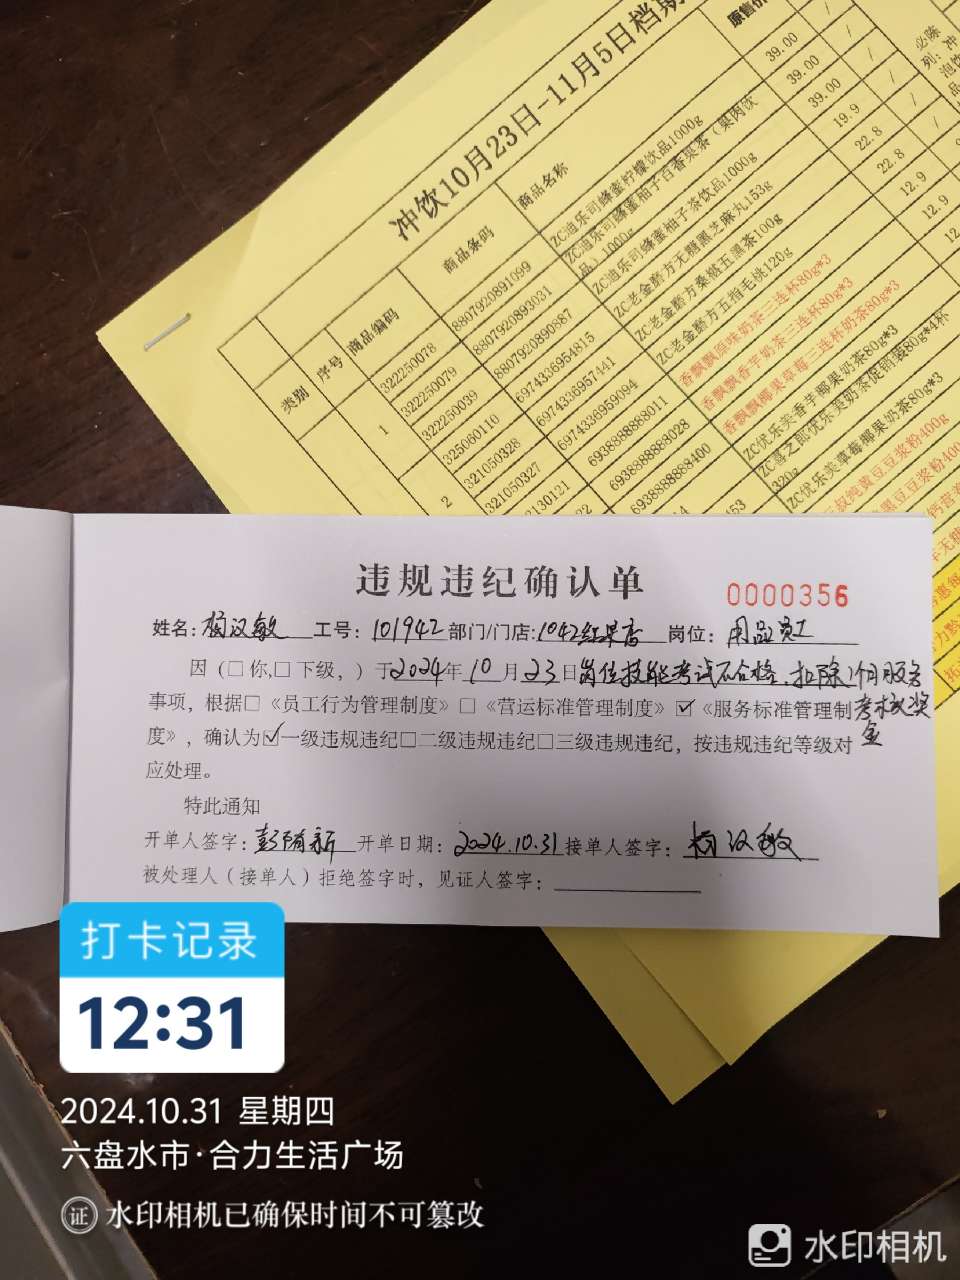 冲饮10月23日-11月5日档期
原售价
必陈列:冲泡饮品
类别
序号
商品编码
商品条码
商品名称
1
2
322250078
322250079
322250039
325060110
321050328
321050327
8807920891099
8807920893031
8807920890887
6974336954815
6974336957441
6974336959094
6938888888011
6938888888028
6938888888400
ZC迪乐司蜂蜜柠檬饮品1000g
ZC迪乐司蜂蜜柚子百香果茶（果肉饮品）1000g
ZC迪乐司蜂蜜柚子茶饮品1000g
ZC老金磨方无糖黑芝麻丸153g
ZC老金磨方桑葚五黑茶100g
ZC老金磨方五指毛桃120g
香飘飘原味奶茶三连杯80g*3
香飘飘香芋奶茶三连杯80g*3
香飘飘椰果草莓三连杯奶茶80g*3
ZC优乐美香芋椰果奶茶80g*3
ZC喜之郎优乐美奶茶促销装80g*4杯
320g
ZC优乐美草莓椰果奶茶80g*3
39.00
39.00
39.00
19.9
22.8
22.8
12.9
12.9
违规违纪确认单
0000356
姓名:杨汉敏 工号:101942 部门/门店:1042红果店 岗位:用品员工
因（□你,□下级,）于2024年10月23日岗位技能考试不合格,扣除1个月服务
事项，根据□《员工行为管理制度》□《营运标准管理制度》☑《服务标准管理制 考核奖
度》，确认为☑一级违规违纪□二级违规违纪□三级违规违纪，按违规违纪等级对 金
应处理。
特此通知
开单人签字:彭隋新 开单日期:2024.10.31 接单人签字:杨汉敏
被处理人（接单人）拒绝签字时，见证人签字:
打卡记录
12:31
2024.10.31 星期四
六盘水市·合力生活广场
证 水印相机已确保时间不可篡改
水印相机